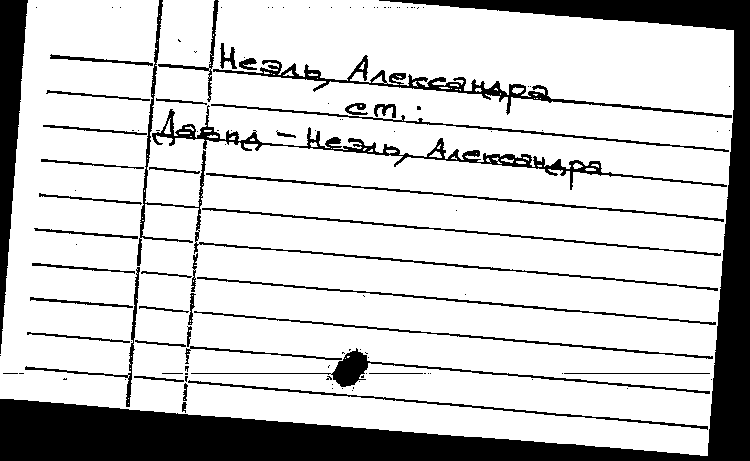 Неэль, Александра
см.:
Давид - Неэль, Александра.